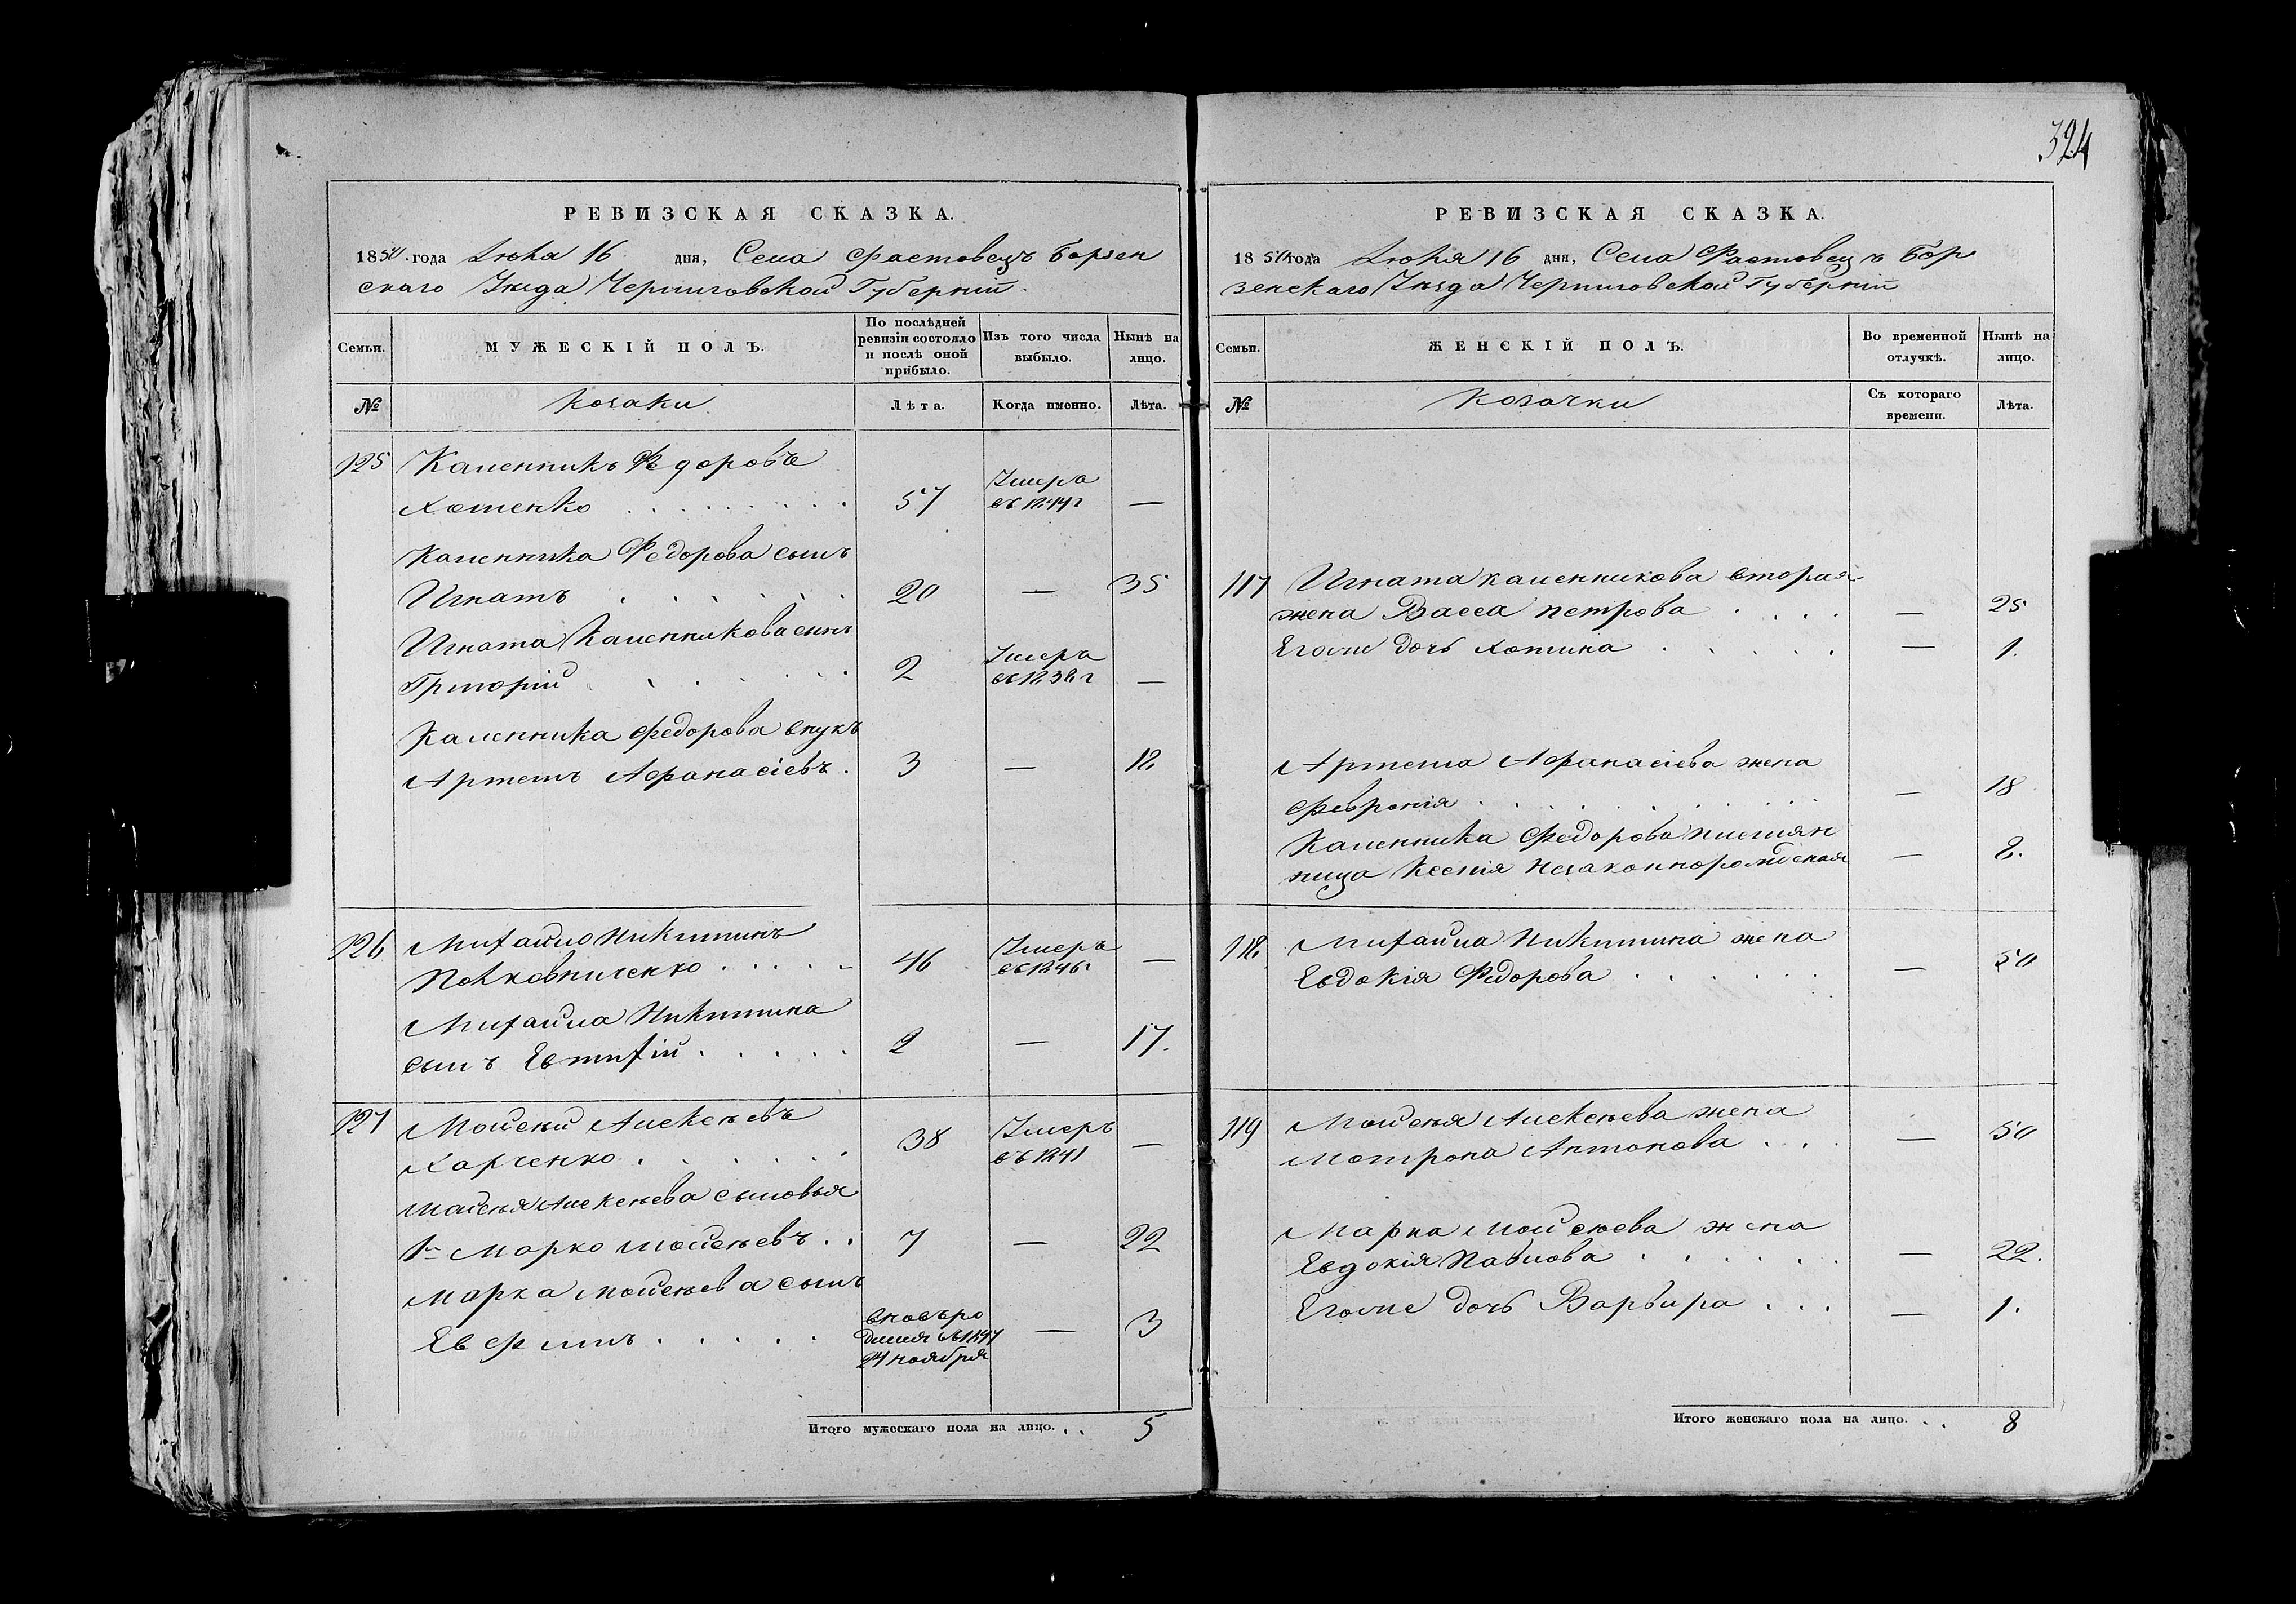 324
РЕВИЗСКАЯ СКАЗКА.
1850 года Июня 16 дня, Села Фастовецъ Борзен
скаго Уезда Черниговской Губерніи
Семьи.
МУЖЕСКІЙ ПОЛЪ.
По послѣдней ревизіи состояло и послѣ оной прибыло.
Изъ того числа выбыло.
Нынѣ на лицо.
№
Козаки
Лѣта.
Когда именно.
Лѣта.
125 Каленникъ Федоровъ
Хотенко 57 Умеръ въ 1844г —
Каленника Федорова сынъ
Игнатъ 20 — 35
Игната Каленникова сынъ
Григорій 2 Умеръ въ 1836г —
Каленника Федорова внукъ
Артемъ Афанасіевъ 3 — 18
126 Михайло Никитинъ
Полковниченко 46 Умеръ въ 1846 —
Михайла Никитина
сынъ Евтихій 2 — 17.
127 Мойсей Алексѣевъ
Харченко 38 Умеръ въ 1841 —
Мойсея Алексѣева сыновья
1й Марко Мойсеевъ 7 — 22
Марка Мойсеева сынъ
Евфимъ вновьро
дился въ 1847
24 ноября — 3
Итого мужескаго пола на лицо. 5
РЕВИЗСКАЯ СКАЗКА.
1850 года Июня 16 дня, Села Фастовецъ Бор
зенскаго Уезда Черниговской Губерніи
Семьи.
ЖЕНСКІЙ ПОЛЪ.
Во временной отлучкѣ.
Нынѣ на лицо.
№
Козачки
Съ котораго времени.
Лѣта.
117 Игната каленникова вторая
жена Васса петрова — 25
Его же дочь Хотина — 1.
Артема Афанасіева жена
Февронія — 18
Каленника Федорова племян
ница Ксенія незаконнорожденая — 8.
118 Михайла Никитина жена
Евдокія Федорова — 50
119 Мойсея Алексѣева жена
Мотрона Антонова — 50
Марка Мойсеева жена
Евдокія Павлова — 22.
Его же дочь Варвара — 1.
Итого женскаго пола на лицо. 8